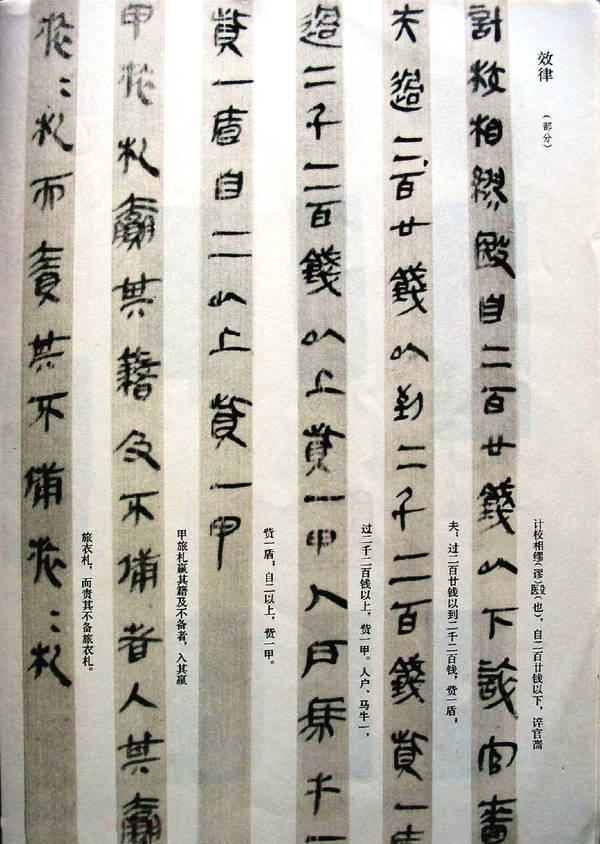 效律
（部分）
计校相缪（谬）殹（也），自二百廿钱以下，谇官啬
計校相繆殹自二百廿錢以下誶官嗇
夫；过二百廿钱以到二千二百钱，赀一盾；
夫過二百廿錢以到二千二百錢貲一盾
过二千二百钱以上，赀一甲。人户、马牛一，
過二千二百錢以上貲一甲人戶馬牛一
赀一盾；自二以上，赀一甲。
貲一盾自二以上貲一甲
甲旅札赢其籍及不备者，入其赢
甲旅札贏其籍及不備者入其贏
旅衣札，而责其不备旅衣札。
旅〻札而責其不備旅〻札